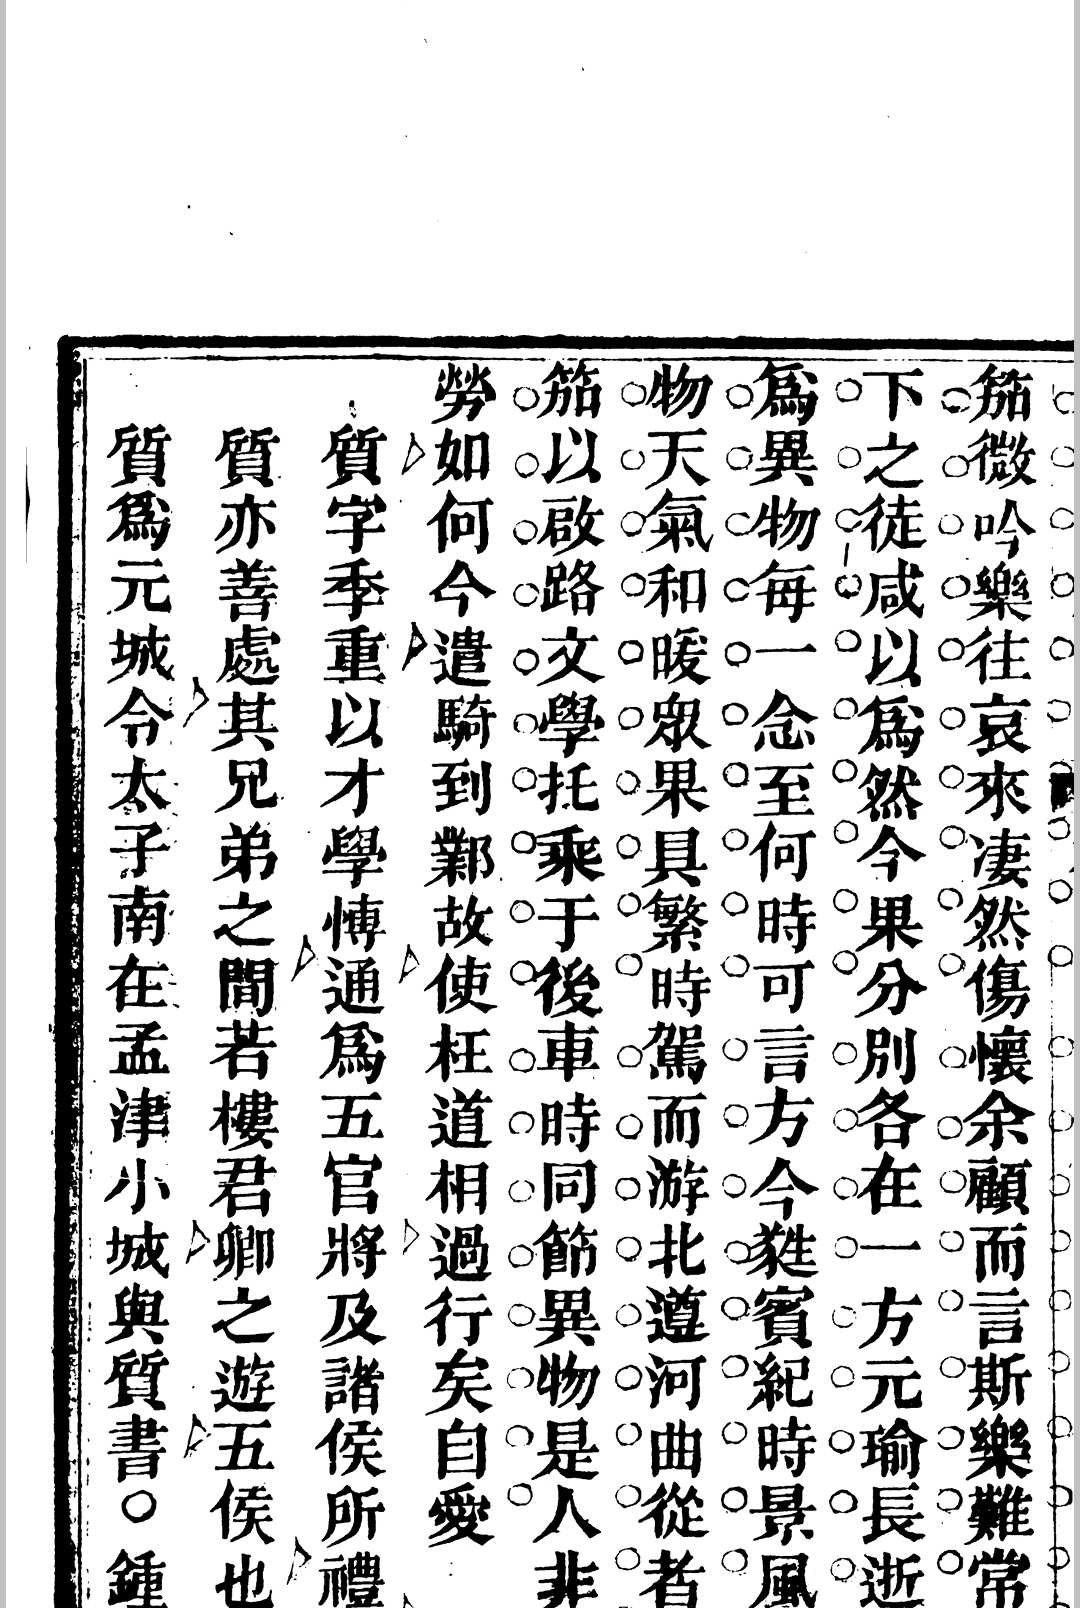 笳微吟樂往哀來凄然傷懷余顧而言斯樂難常
下之徒咸以爲然今果分別各在一方元瑜長逝
爲異物每一念至何時可言方今蕤賓紀時景風
物天氣和暖衆果具繁時駕而游北遵河曲從者
笳以啟路文學托乘于後車時同節異物是人非
勞如何今遣騎到鄴故使枉道相過行矣自愛
質字季重以才學愽通爲五官將及諸侯所禮
質亦善處其兄弟之間若樓君卿之遊五侯也
質爲元城令太子南在孟津小城與質書○鍾